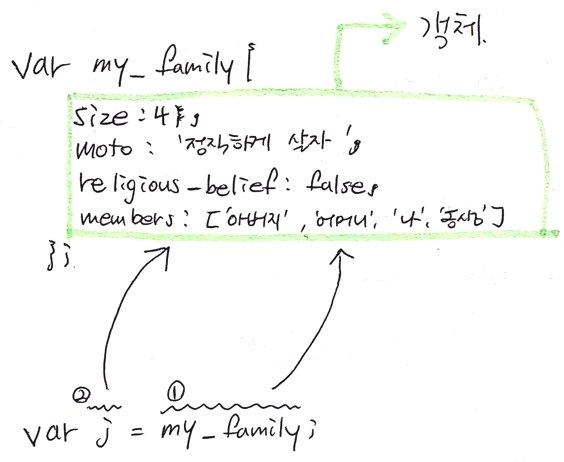 객체.
var my_family {
size : 4,
moto : '정직하게 살자',
religious_belief : false,
members : ['아버지', '어머니', '나', '동생']
};
② ①
var j = my_family;